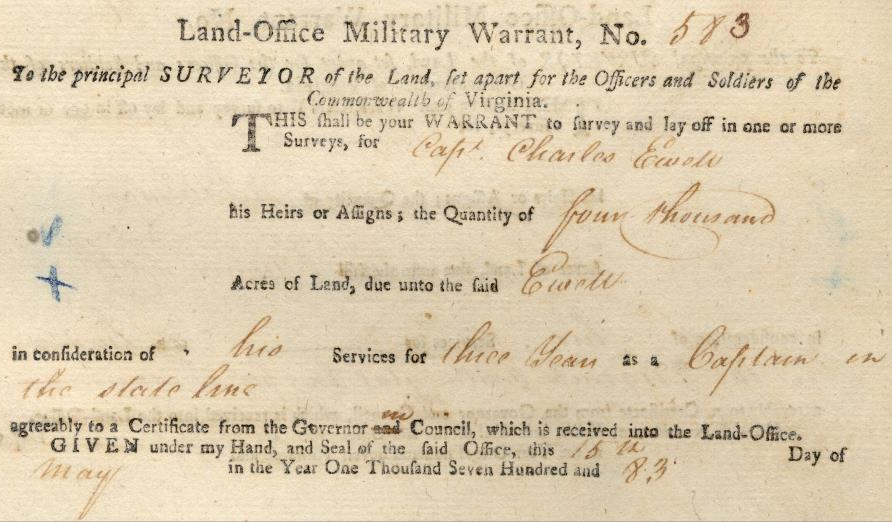 Land-Office Military Warrant, No. 583
To the principal SURVEYOR of the Land, ſet apart for the Officers and Soldiers of the
Commonwealth of Virginia.
THIS ſhall be your WARRANT to ſurvey and lay off in one or more
Surveys, for Capt. Charles Ewell
his Heirs or Aſſigns; the Quantity of four thousand
Acres of Land, due unto the ſaid Ewell
in conſideration of his Services for three Years as a Captain in
the state line
agreeably to a Certificate from the Governor and in Council, which is received into the Land-Office.
GIVEN under my Hand, and Seal of the ſaid Office, this 15th Day of
May in the Year One Thouſand Seven Hundred and 83